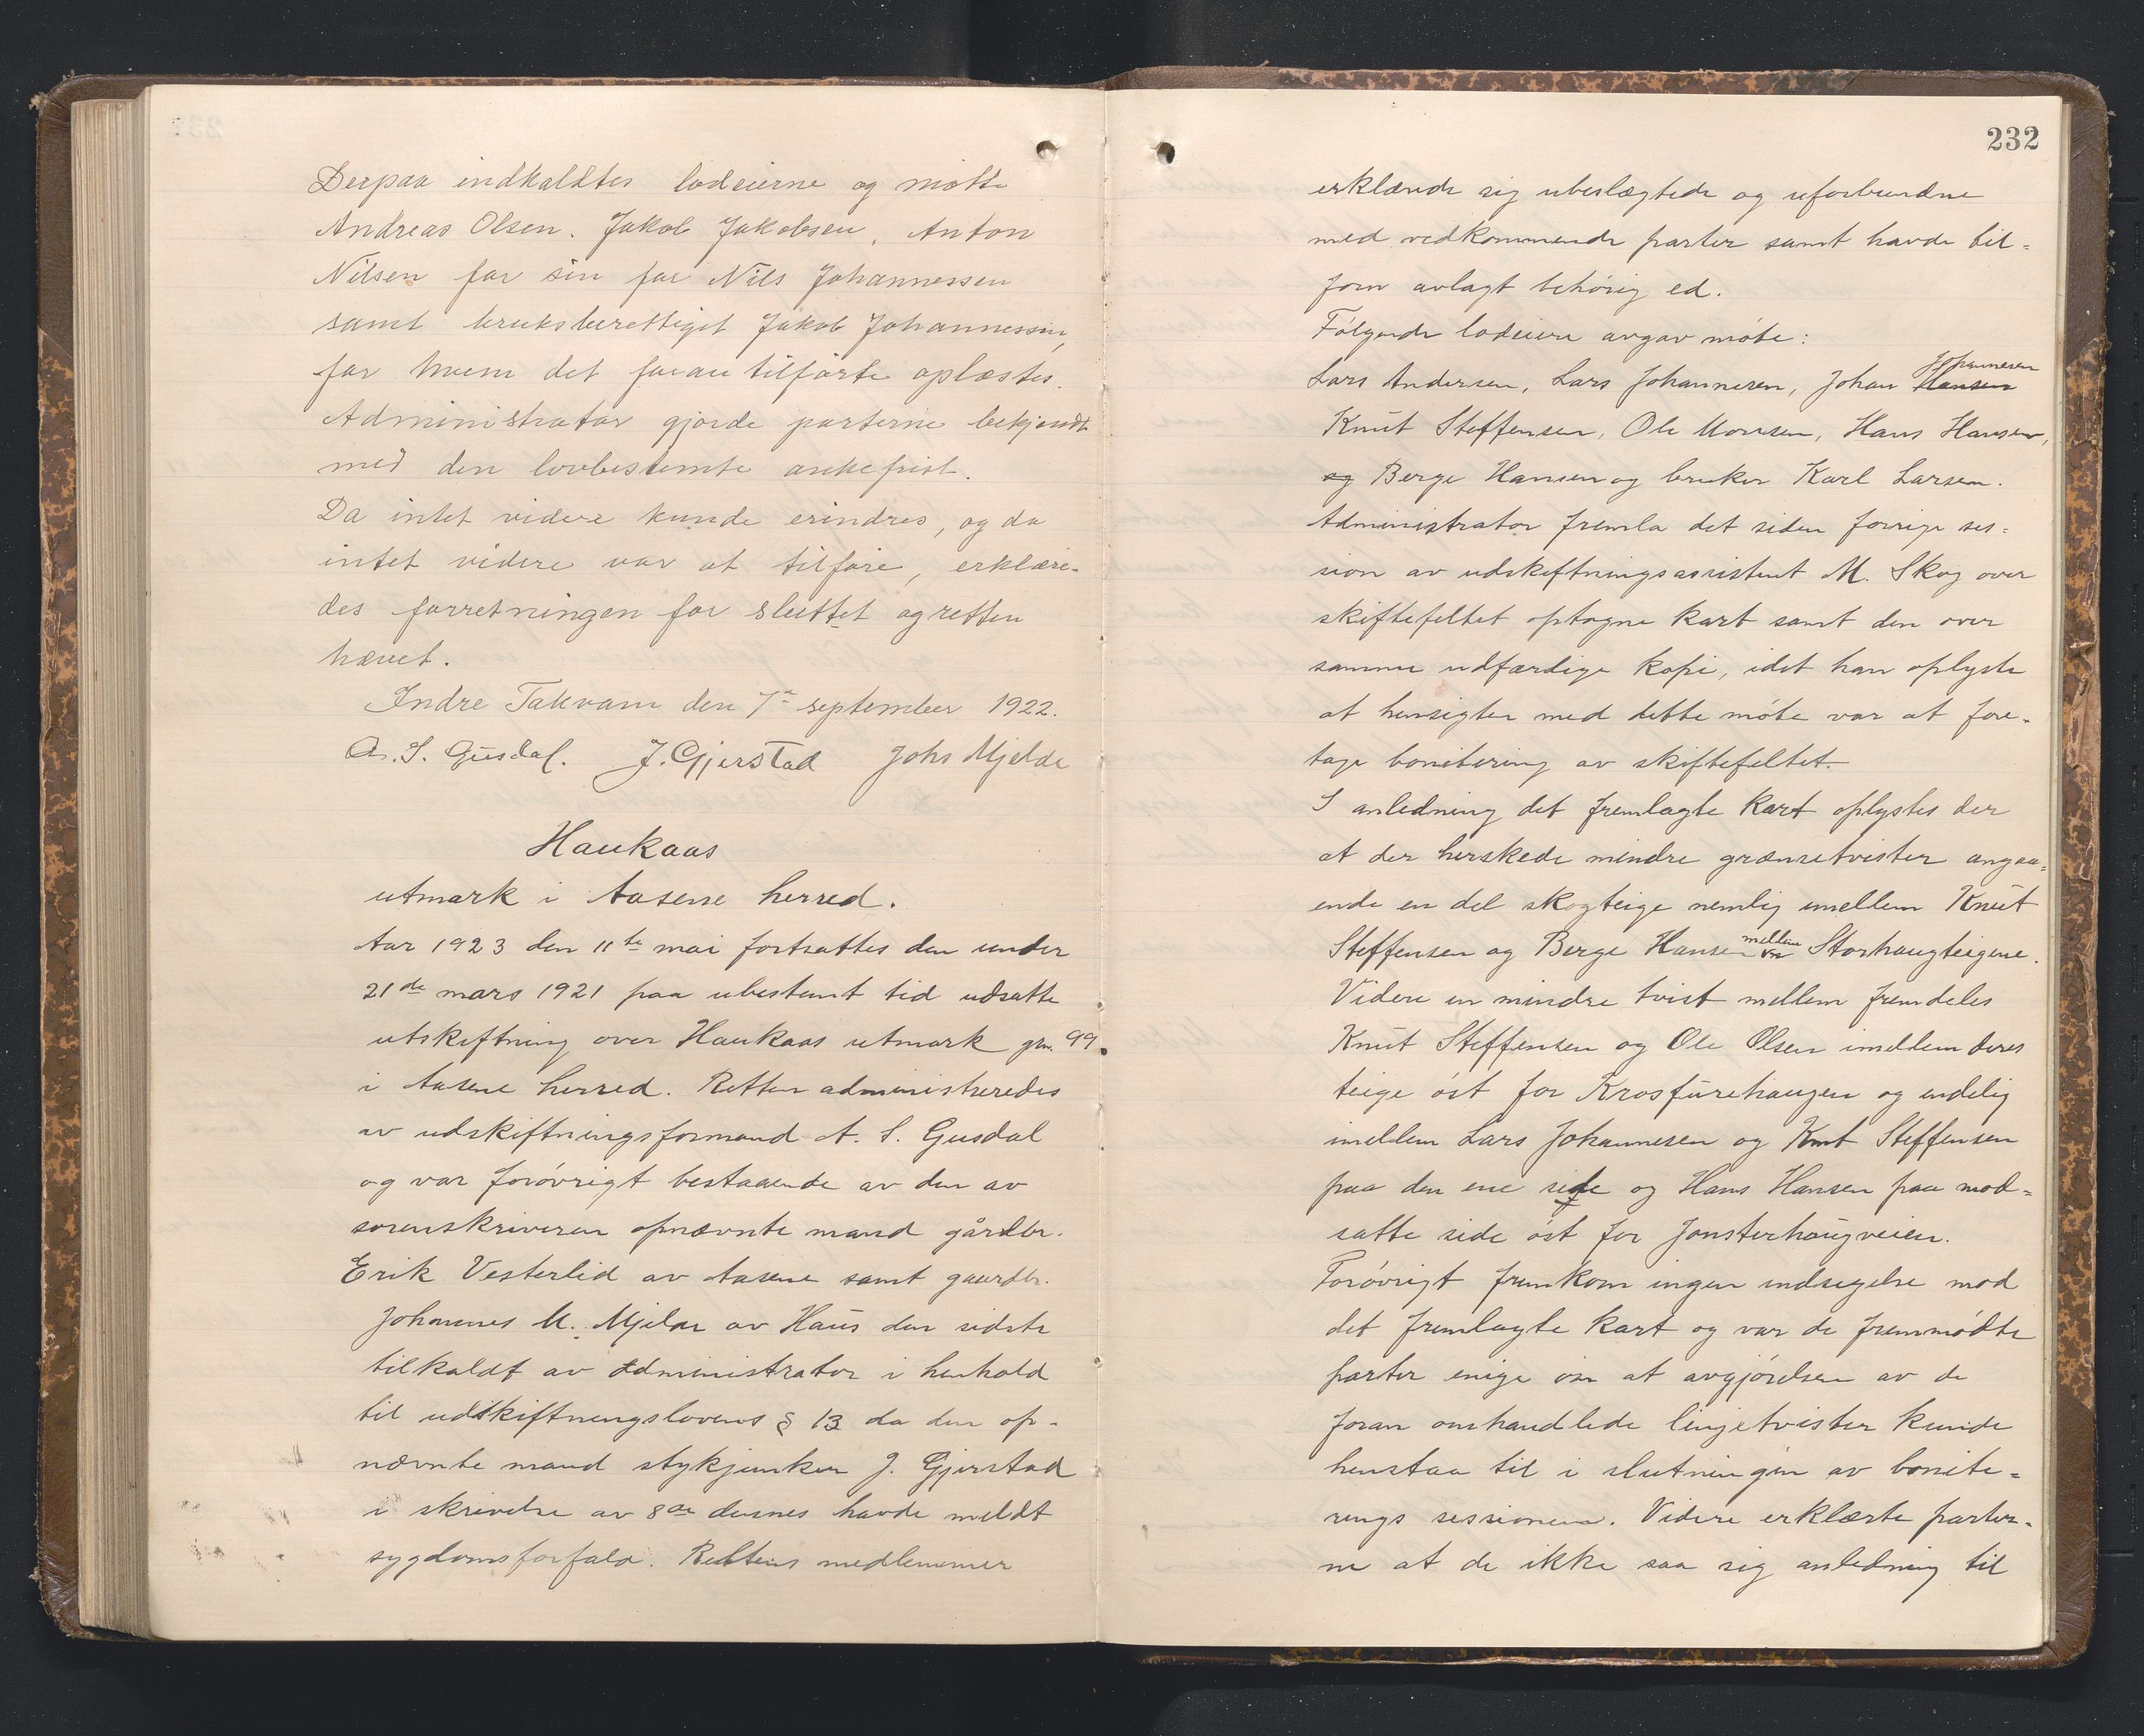 Derpaa indkaldtes lodeierne og møtte
Andreas Olsen. Jakob Jakobsen, Anton
Nilsen for sin far Nils Johannessen
samt bruksberettiget Jakob Johannessen,
for hvem det foran tilførte oplæstes.
Administrator gjorde parterne bekjendt
med den lovbestemte ankefrist.
Da intet videre kunde erindres, og da
intet videre var at tilføre, erklære-
des forretningen for sluttet og retten
hævet.
Indre Takvam den 7de september 1922.
A. S. Gusdal. J. Gjerstad Johs Mjelde
Haukaas
utmark i Aasene herred.
Aar 1923 den 11te mai fortsattes den under
21de mars 1921 paa ubestemt tid udsatte
utskiftning over Haukaas utmark gn. 99.
i Aasene herred. Retten administreredes
av udskiftningsformand A. S. Gusdal
og var forøvrigt bestaaende av den av
sorenskriveren opnævnte mand gårdbr.
Erik Vesterlid av Aasene samt gaardbr.
Johannes M. Mjelde av Haus den sidste
tilkaldt av administrator i henhold
til udskiftningslovens § 13 da den op-
nævnte mand stykjunker J. Gjerstad
i skrivelse av 8de dennes havde meldt
sygdomsforfald. Rettens medlemmer
232
erklærede sig ubeslægtede og uforbundne
med vedkommende parter samt havde til=
forn avlagt behørig ed.
Følgende lodeiere avgav møte:
Lars Andersen, Lars Johannesen, Johan Hansen Johannesen
Knut Steffensen, Ole Monsen, Hans Hansen,
og Berge Hansen og bruker Karl Larsen.
Administrator fremla det siden forrige ses=
sion av udskiftningsassistent M. Skog over
skiftefeltet optagne kart samt den over
samme udfærdige kopi, idet han oplyste
at hensigten med dette møte var at fore-
tage bonitering av skiftefeltet.
I anledning det fremlagte kart oplystes der
at der herskede mindre grænsetvister angaa=
ende en del skogteige nemlig imellem Knut
Steffensen og Berge Hansen mellem Storhaugteigene.
Videre en mindre tvist mellem fremdeles
Knut Steffensen og Ole Olsen imellem deres
teige øst for Krosfurehaugen og endelig
imellem Lars Johannesen og Knut Steffensen
paa den ene side og Hans Hansen paa mod=
satte side øst for Jonsterhaugveien.
Forøvrigt fremkom ingen indsigelse mod
det fremlagte kart og var de fremmødte
parter enige om at avgjørelsen av de
foran omhandlede linjetvister kunde
henstaa til i slutningen av bonite=
rings sessionen. Videre erklærte parter-
ne at de ikke saa sig anledning til